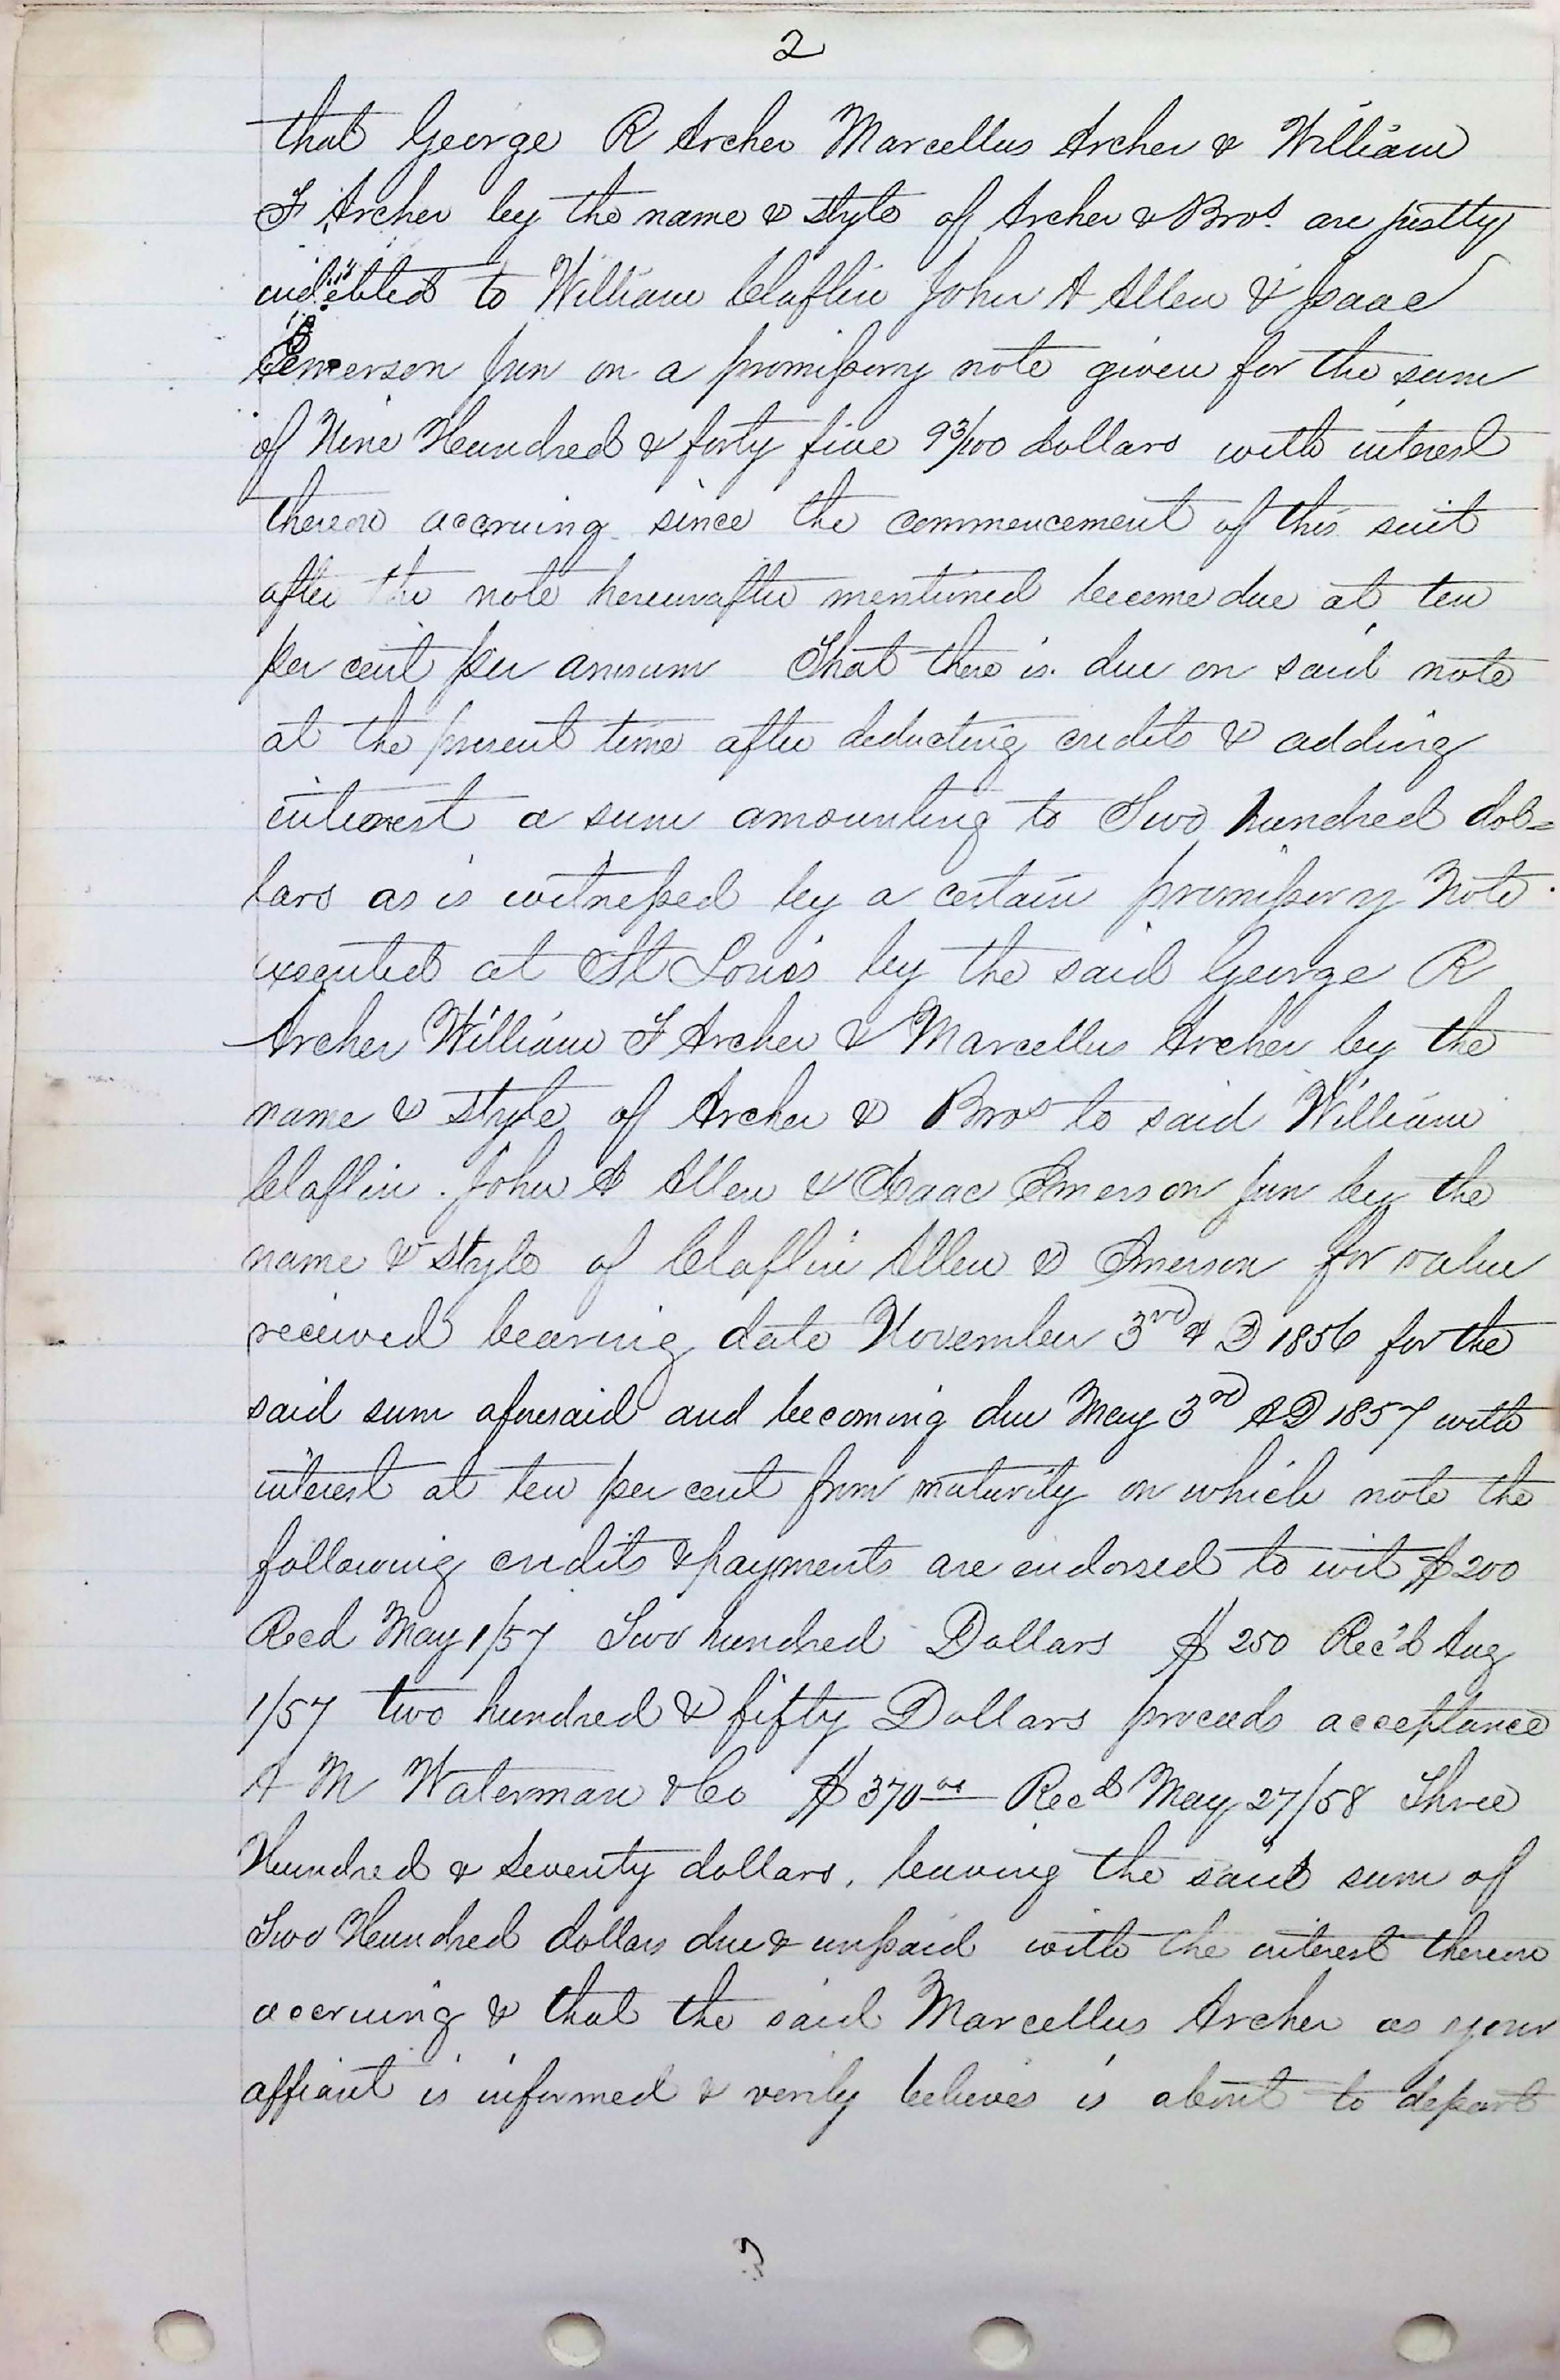 2
that George R Archer Marcellus Archer & William
F Archer by the name & style of Archer & Bros. are justly
indebted to William Claflin John A Allen & Isaac
Emerson Jun on a promissory note given for the sum
of Nine Hundred & forty five 93/100 dollars with interest
thereon accruing since the commencement of this suit
after the note hereinafter mentioned become due at ten
per cent per annum That there is due on said note
at the present time after deducting credits & adding
interest a sum amounting to Two hundred dol=
lars as is witnessed by a certain promissory Note
executed at St Louis by the said George R
Archer William F Archer & Marcellus Archer by the
name & style of Archer & Bros to said William
Claflin. John A Allen & Isaac Emerson Jun by the
name & style of Claflin Allen & Emerson for value
received bearing date November 3rd A D 1856 for the
said sum aforesaid and becoming due May 3rd AD 1857 with
interest at ten per cent from maturity on which note the
following credits & payments are endorsed to wit $200
Recd May 1/57 Two hundred Dollars $250 Rec'd Aug
1/57 two hundred & fifty Dollars proceeds acceptance
A M Waterman & Co $370 00 Recd May 27/58 Three
Hundred & Seventy dollars, leaving the said sum of
Two Hundred dollars due & unpaid with the interest thereon
accruing & that the said Marcellus Archer as your
affiant is informed & verily believes is about to depart